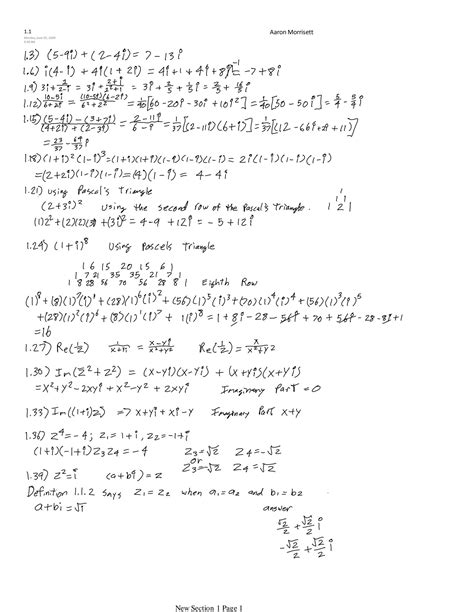 1.1
Aaron Morrisett
1.3) (5-9i) + (2-4i) = 7-13i
1.6) i(4-i) + 4i(1+2i) = 4i+1+4i+8i² = -7+8i
1.9) 3i + 2/(2-i) = 3i +
1.12) (10-5i)/(6+2i) = = 1/40[60-20i-30i+10i²] = 1/40[50-50i] = 5/4 - 5/4 i
1.15) = (2-11i)/(6-i) = 1/37[(2-11i)(6+i)] = 1/37[(12-66i+2i+11)]
= 23/37 - 64/37 i
1.18) (1+i)²(1-i)³ = (1+i)(1+i)(1-i)(1-i)(1-i) = 2i(1-i)(1-i)(1-i)
= (2+2i)(1-i)(1-i) = (4)(1-i) = 4-4i
1.21) Using Pascal's Triangle
1 1
(2+3i)² Using the second row of the Pascal's Triangle. 1 2 1
(1)2² + (2)(2)(3i) + (3i)² = 4-9+12i = -5+12i
1.24) (1+i)⁸ Using Pascals Triangle
1 6 15 20 15 6 1
1 7 21 35 35 21 7 1
1 8 28 56 70 56 28 8 1 Eighth Row
(1)⁸+(8)(1)⁷(i)¹+(28)(1)⁶(i)²+(56)(1)⁵(i)³+(70)(1)⁴(i)⁴+(56)(1)³(i)⁵
+(28)(1)²(i)⁶+(8)(1)¹(i)⁷+1(i)⁸ = 1+8i-28-56i+70+56i-28-8i+1
=16
1.27) Re(1/z) = (x-yi)/(x²+y²) Re(1/z) = x/(x²+y²)
1.30) Im(z̄²+z²) = (x-yi)(x-yi) + (x+yi)(x+yi)
= x²+y²-2xyi+x²-y²+2xyi Imaginary Part = 0
1.33) Im((1+i)z) => x+yi+xi-y Imaginary Part x+y
1.36) z⁴=-4; z₁=1+i, z₂=-1+i
(1+i)(-1+i)z₃z₄ = -4 z₃=√2 z₄=-√2
or
z₃=-√2 z₄=√2
1.39) z²=i (a+bi)=z
Definition 1.1.2 says z₁=z₂ when a₁=a₂ and b₁=b₂
a+bi=√i answer
√2/2 + √2/2 i
-√2/2 + √2/2 i
New Section 1 Page 1